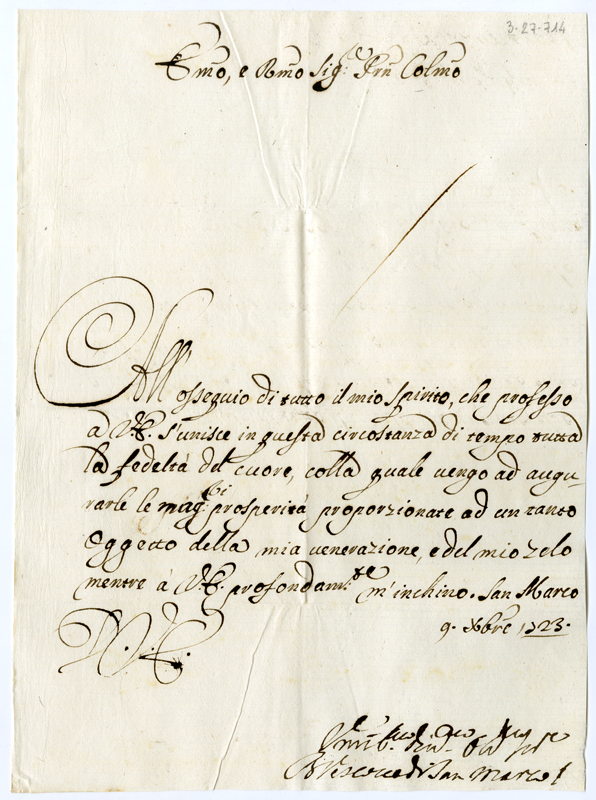 3-27-714
Emo, e Rmo Sig.r Prn Colmo
All' ossequio di tutto il mio spirito, che professo
a V.E. s'unisce in questa circostanza di tempo tutta
la fedeltà del cuore, colla quale vengo ad augu-
rarle le mag.ri prosperità proporzionate ad un tanto
Oggetto della mia venerazione, e del mio zelo
mentre à V.E. profondam.te m'inchino. San Marco
9. Xbre 1723.
D. V. E.
Il Vescovo di San Marco